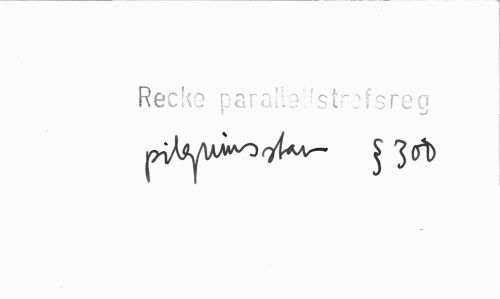 Recke parallellstrofsreg
pilgrimsstav § 300